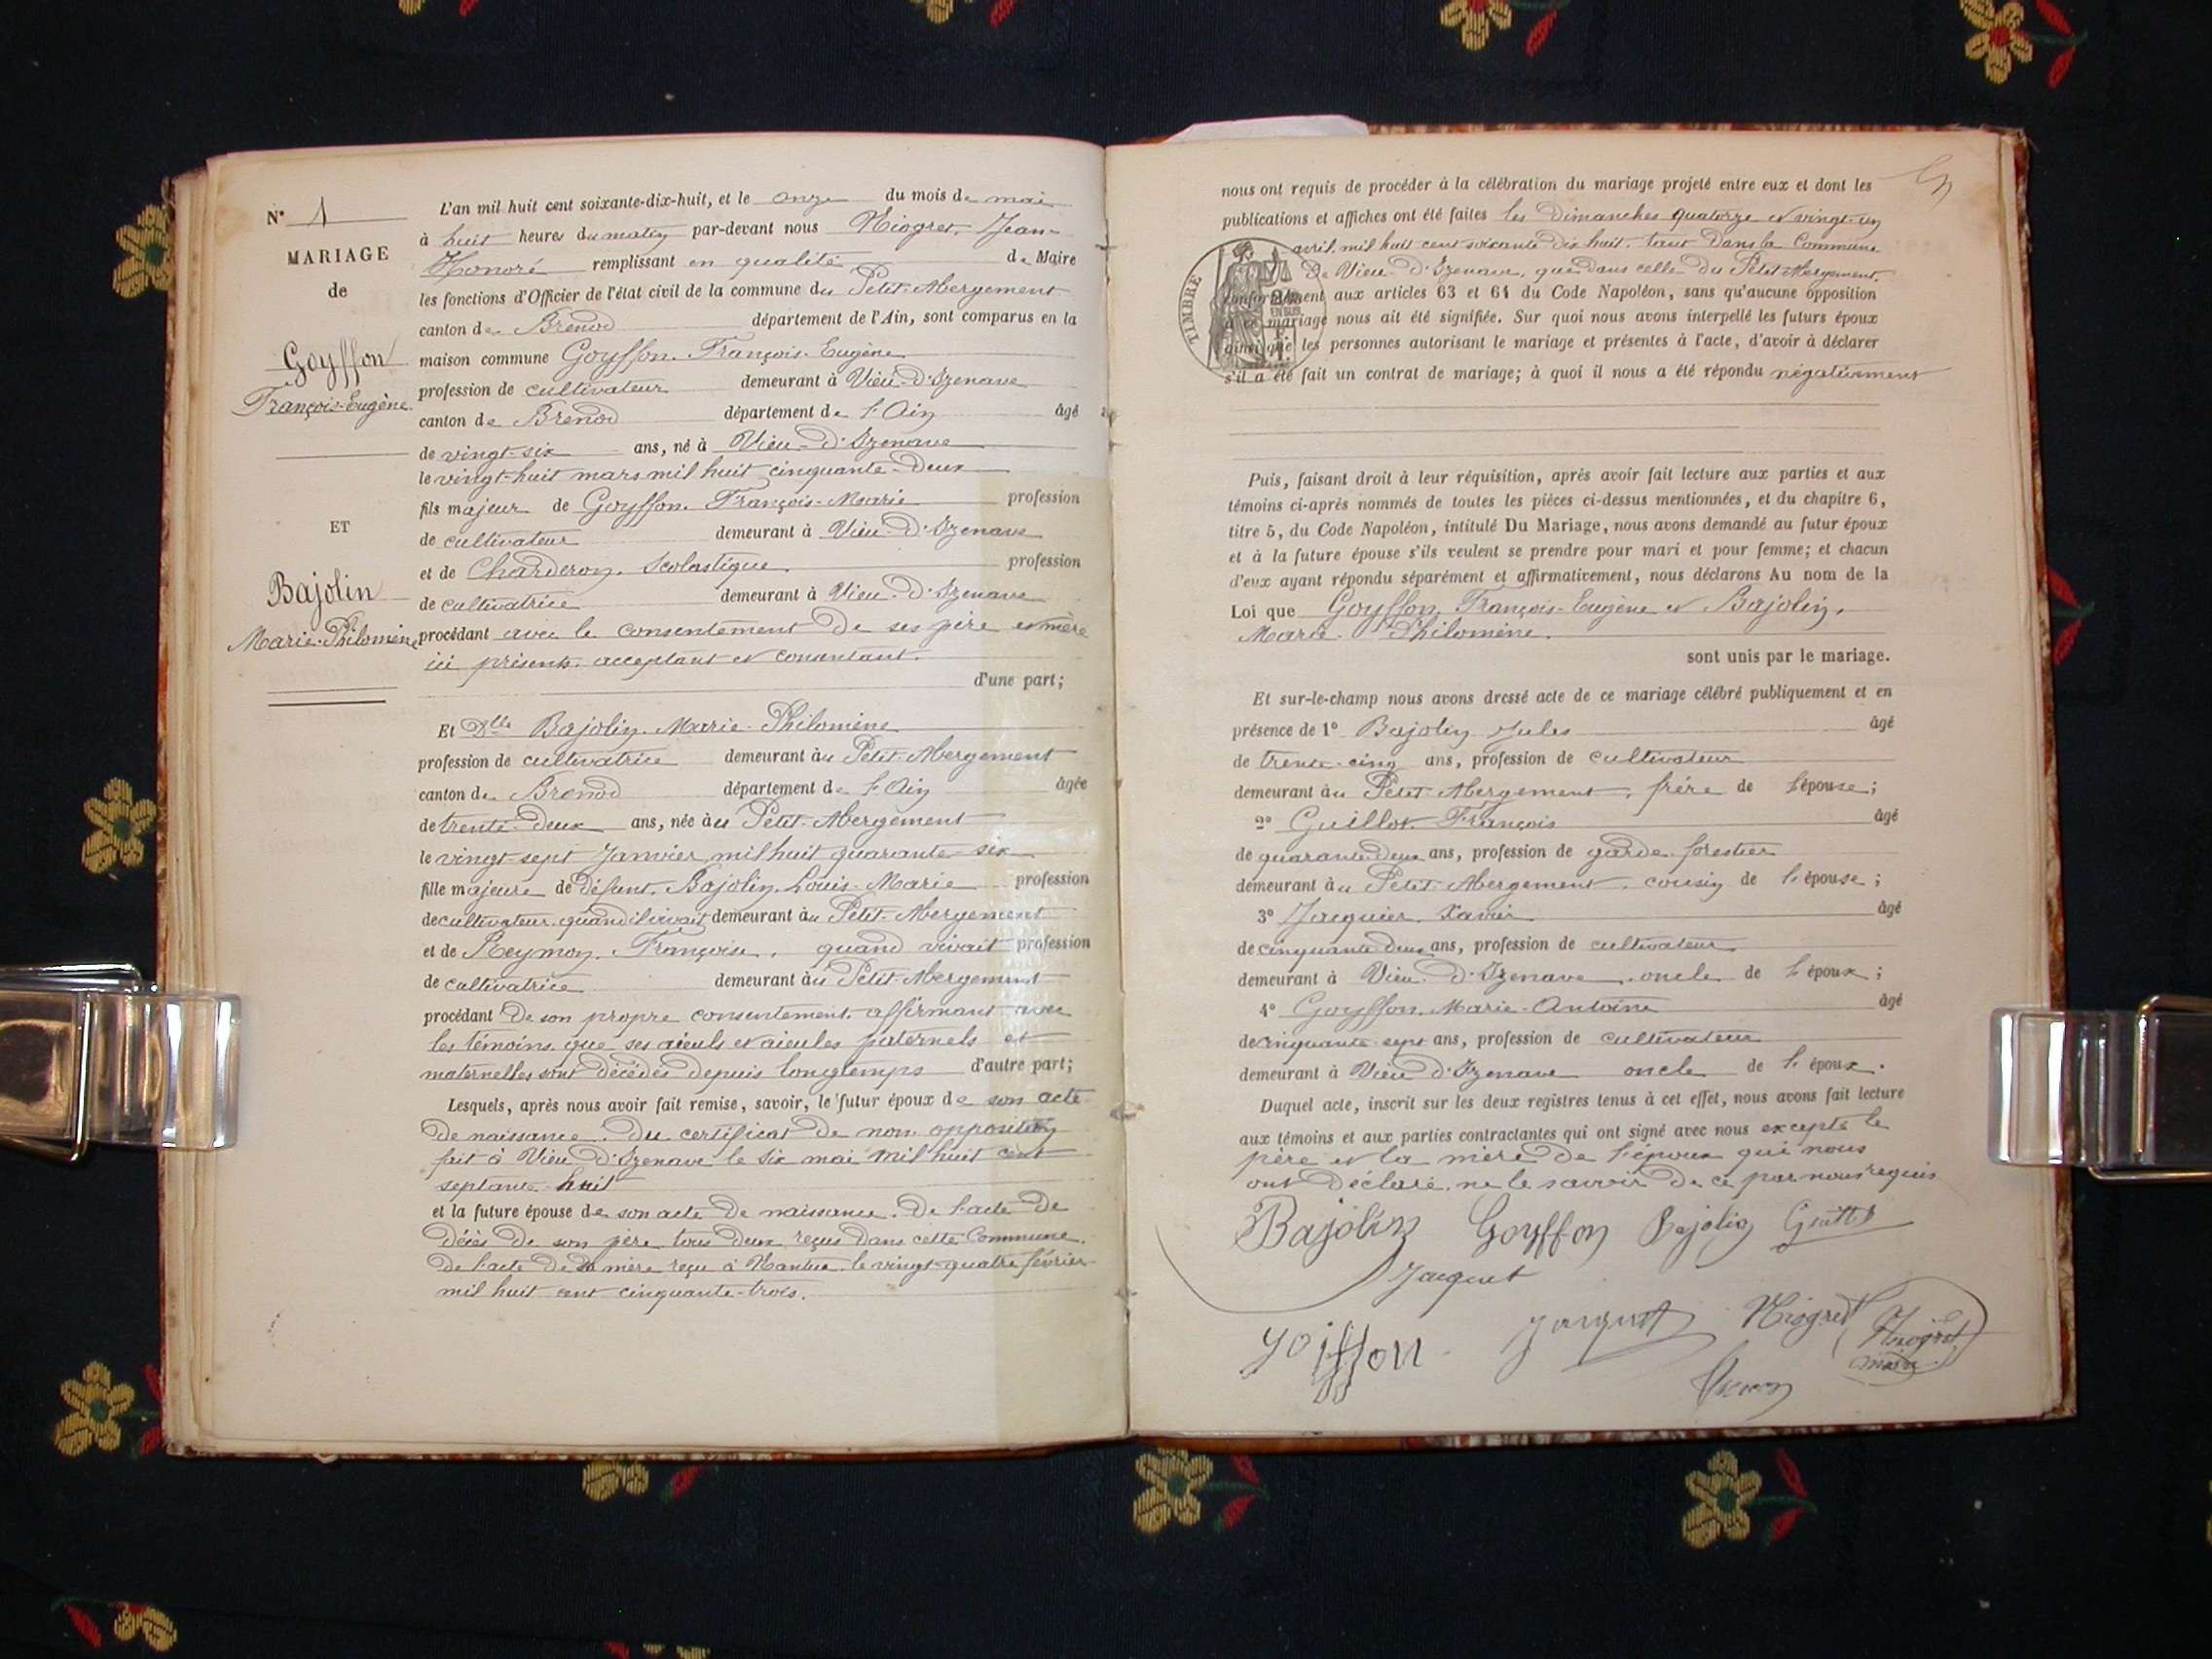 N° 1
MARIAGE
de
Goyffon
François-Eugène
ET
Bajolin
Marie-Philomène
L'an mil huit cent soixante-dix-huit, et le onze du mois de mai
à huit heures du matin par-devant nous Niogret, Jean-
Honoré remplissant en qualité de Maire
les fonctions d'Officier de l'état civil de la commune du Petit-Abergement
canton de Brénod département de l'Ain, sont comparus en la
maison commune Goyffon. François-Eugène
profession de cultivateur demeurant à Vieu-d'Izenave
canton de Brénod département de l'Ain âgé
de vingt-six ans, né à Vieu-d'Izenave
le vingt-huit mars mil huit cinquante-deux
fils majeur de Goyffon. François-Marie profession
de cultivateur demeurant à Vieu-d'Izenave
et de Charderon. Scolastique. profession
de cultivatrice demeurant à Vieu-d'Izenave
procédant avec le consentement de ses père et mère
ici présents. acceptant et consentant.
d'une part;
Et Dlle Bajolin. Marie-Philomène
profession de cultivatrice demeurant au Petit-Abergement
canton de Brénod département de l'Ain âgée
de trente-deux ans, née au Petit-Abergement
le vingt-sept Janvier mil huit quarante-six
fille majeure de défunt. Bajolin. Louis-Marie profession
de cultivateur quand il vivait demeurant au Petit-Abergement
et de Reymon. Françoise. quand vivait profession
de cultivatrice demeurant au Petit-Abergement
procédant de son propre consentement. affirmant avec
les témoins que ses aïeuls et aieules paternels et
maternelles sont décédés depuis longtemps d'autre part;
Lesquels, après nous avoir fait remise, savoir, le futur époux de son acte
de naissance. du certificat de non opposition
fait à Vieu d'Izenave le six mai mil huit cent
septante-huit
et la future épouse de son acte de naissance. de l'acte de
décès de son père tous deux reçus dans cette Commune.
de l'acte de sa mère reçu à Nantua. le vingt-quatre février
mil huit cent cinquante-trois.
nous ont requis de procéder à la célébration du mariage projeté entre eux et dont les
publications et affiches ont été faites les Dimanches quatorze et vingt-un
avril mil huit cent soixante dix huit. tant dans la Commune
de Vieu-d'Izenave. que dans celle du Petit-Abergement.
TIMBRE
conformément aux articles 63 et 64 du Code Napoléon, sans qu'aucune opposition
à ce mariage nous ait été signifiée. Sur quoi nous avons interpellé les futurs époux
ainsi que les personnes autorisant le mariage et présentes à l'acte, d'avoir à déclarer
s'il a été fait un contrat de mariage; à quoi il nous a été répondu négativement
Puis, faisant droit à leur réquisition, après avoir fait lecture aux parties et aux
témoins ci-après nommés de toutes les pièces ci-dessus mentionnées, et du chapitre 6,
titre 5, du Code Napoléon, intitulé Du Mariage, nous avons demandé au futur époux
et à la future épouse s'ils veulent se prendre pour mari et pour femme; et chacun
d'eux ayant répondu séparément et affirmativement, nous déclarons Au nom de la
Loi que Goyffon, François-Eugène et Bajolin.
Marie-Philomène.
sont unis par le mariage.
Et sur-le-champ nous avons dressé acte de ce mariage célébré publiquement et en
présence de 1° Bajolin Jules âgé
de trente-cinq ans, profession de cultivateur
demeurant au Petit-Abergement, frère de l'épouse;
2° Guillot. François âgé
de quarante-deux ans, profession de garde-forestier
demeurant au Petit-Abergement. cousin de l'épouse;
3° Jacquier. Xavier âgé
de cinquante-deux ans, profession de cultivateur
demeurant à Vieu-d'Izenave. oncle de l'époux;
4° Goyffon. Marie-Antoine âgé
de cinquante-sept ans, profession de cultivateur
demeurant à Vieu d'Izenave oncle de l'époux.
Duquel acte, inscrit sur les deux registres tenus à cet effet, nous avons fait lecture
aux témoins et aux parties contractantes qui ont signé avec nous excepté le
père et la mère de l'époux qui nous
ont déclaré ne le savoir de ce par nous requis
Bajolin Goyffon Bajolin Guillot
Jacquet
goiffon Niogret Niogret
maire